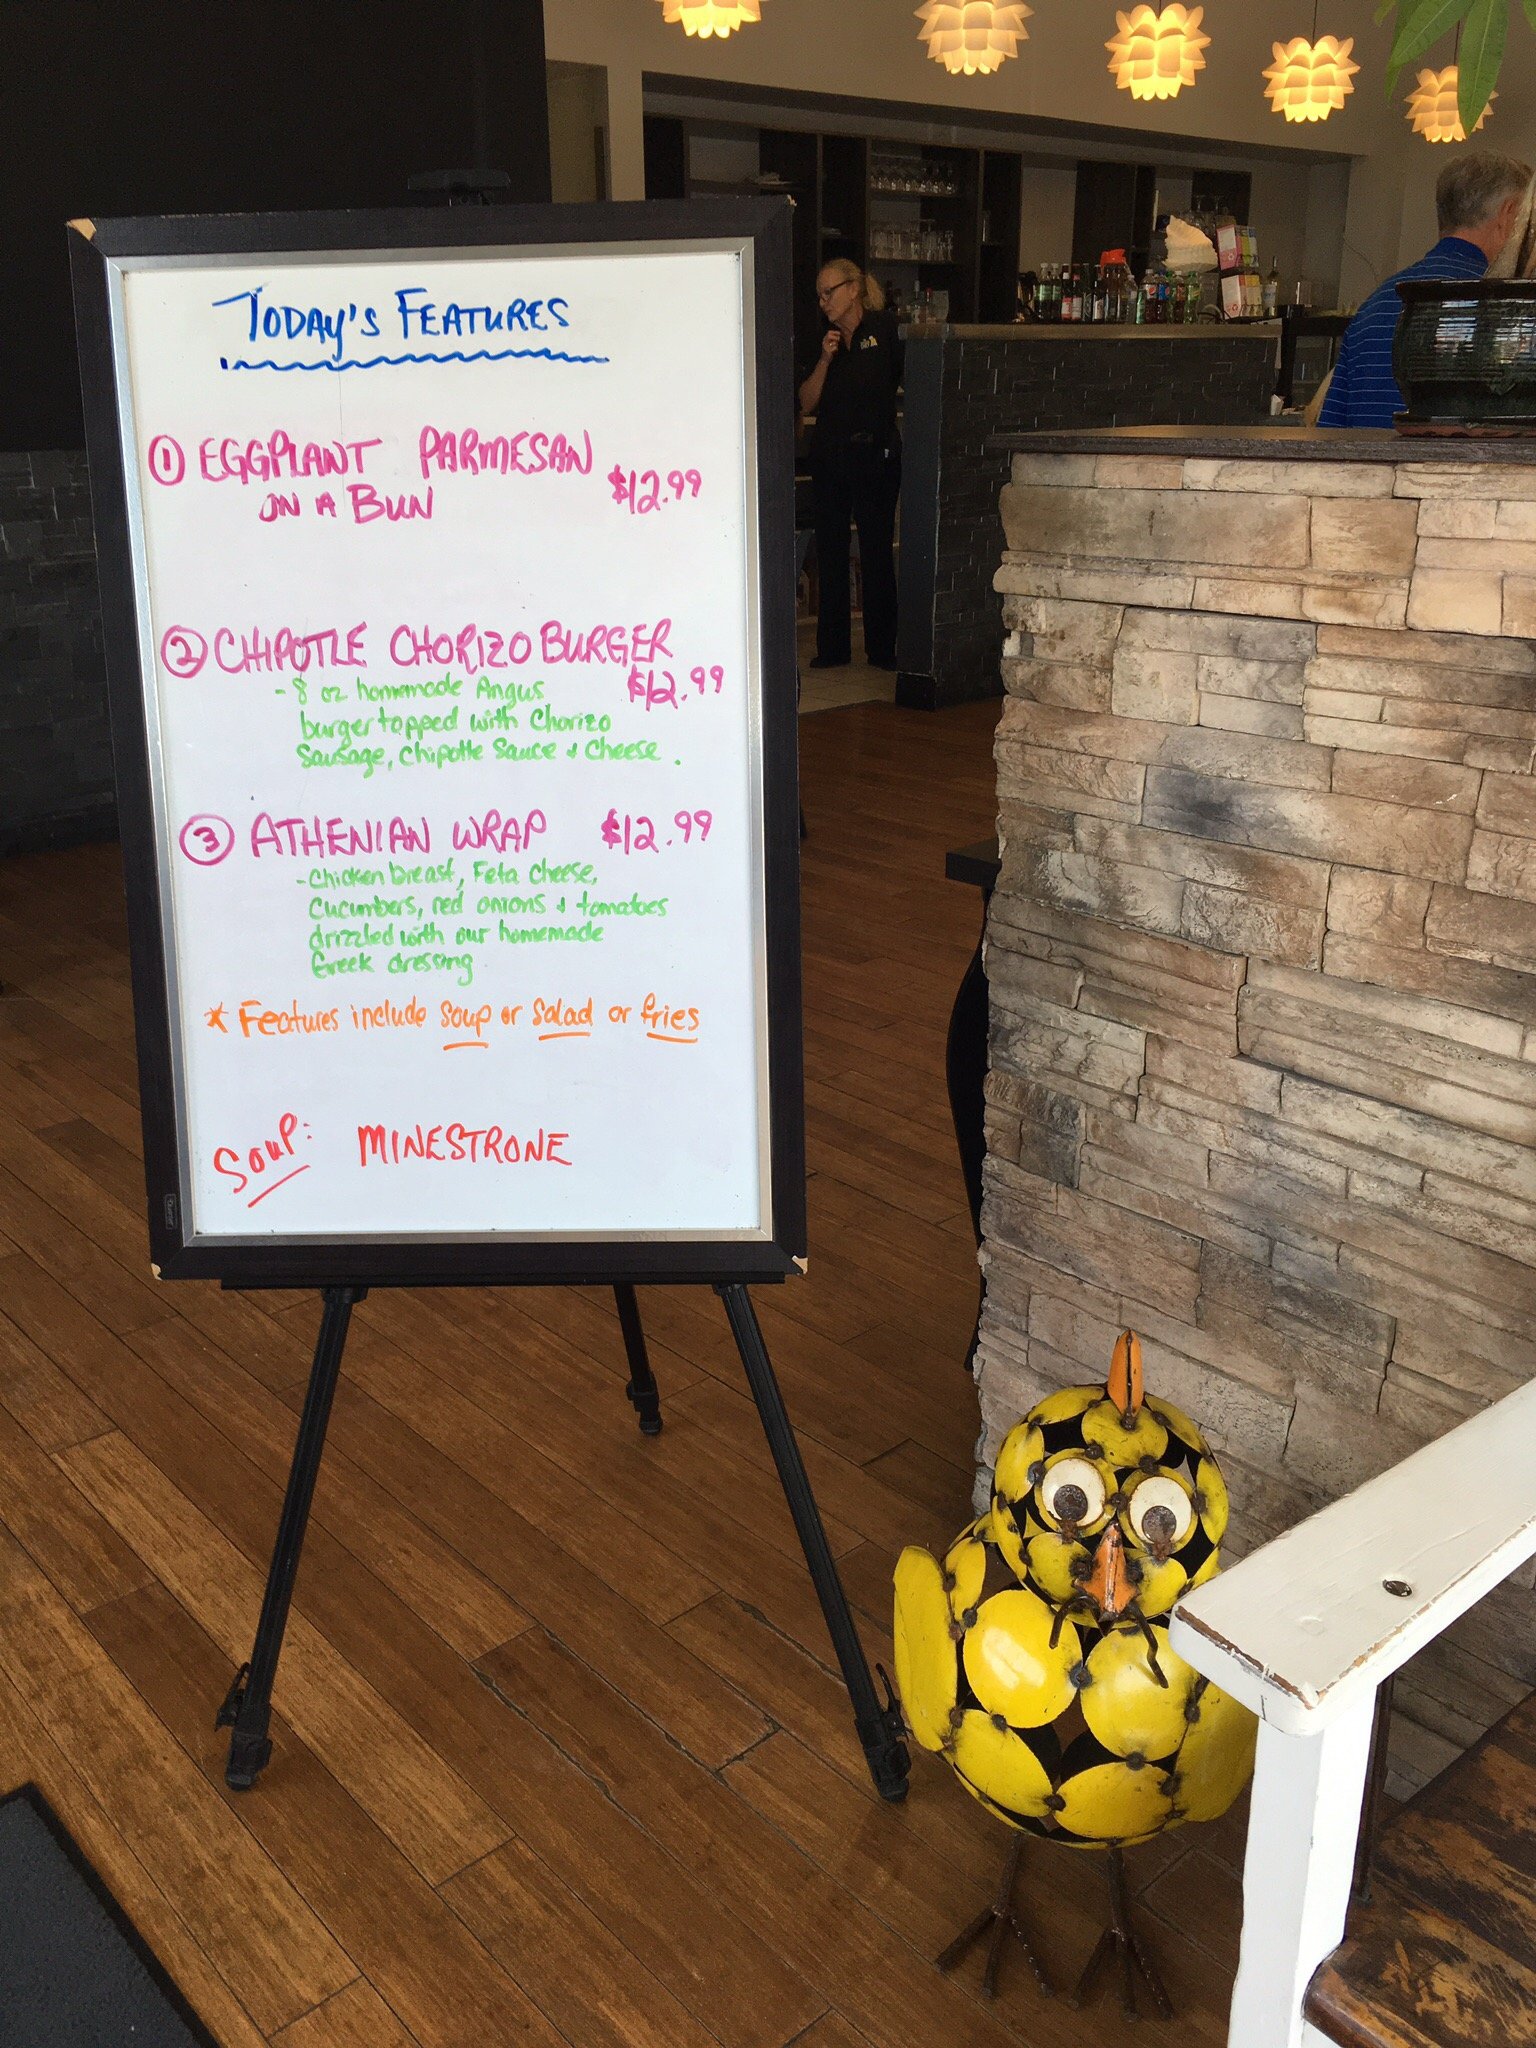 TODAY'S FEATURES
① EGGPLANT PARMESAN
ON A BUN $12.99
② CHIPOTLE CHORIZO BURGER
$12.99
- 8 oz homemade Angus
burger topped with Chorizo
Sausage, Chipotle Sauce + Cheese.
③ ATHENIAN WRAP $12.99
- Chicken breast, Feta cheese,
Cucumbers, red onions + tomatoes
drizzled with our homemade
Greek dressing
* Features include Soup or Salad or fries
SOUP: MINESTRONE